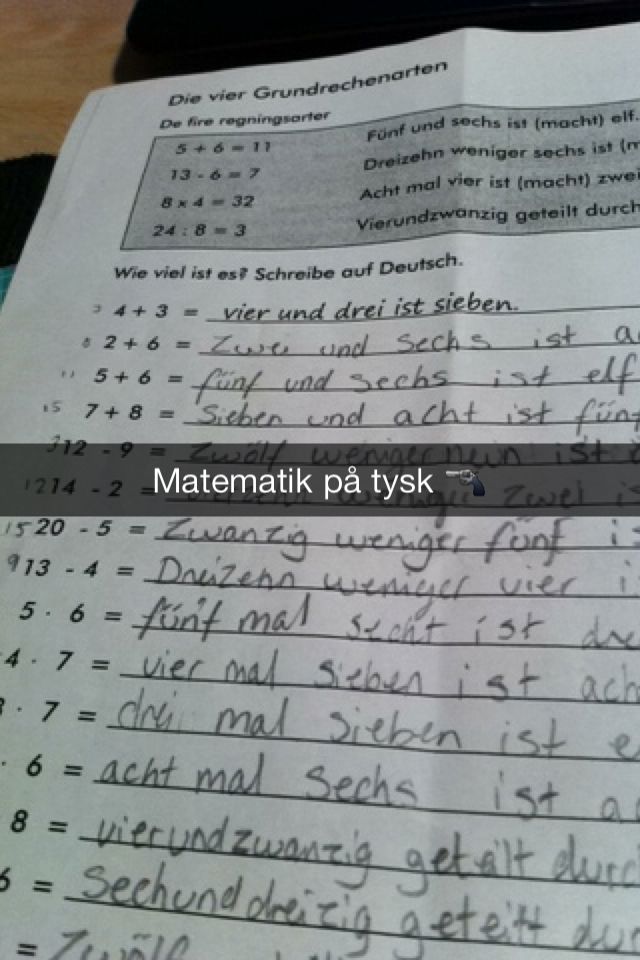 Die vier Grundrechenarten
De fire regningsarter
5 + 6 = 11 Fünf und sechs ist (macht) elf.
13 - 6 = 7 Dreizehn weniger sechs ist (m
8 x 4 = 32 Acht mal vier ist (macht) zwei
24 : 8 = 3 Vierundzwanzig geteilt durch
Wie viel ist es? Schreibe auf Deutsch.
4 + 3 = vier und drei ist sieben.
8 2 + 6 = Zwei und sechs ist a
11 5 + 6 = fünf und sechs ist elf
15 7 + 8 = Sieben und acht ist fün
3 12 - 9 = Zwölf weniger nein ist
Matematik på tysk 🔫
12 14 - 2 = weniger zwei is
15 20 - 5 = Zwanzig weniger fünf i
9 13 - 4 = Dreizehn weniger vier i
5 · 6 = fünf mal secht ist dre
4 · 7 = vier mal sieben ist ach
· 7 = drei mal sieben ist e
· 6 = acht mal sechs ist a
8 = vierundzwanzig geteilt durc
6 = Sechunddreizig geteilt dur
= Zwölf